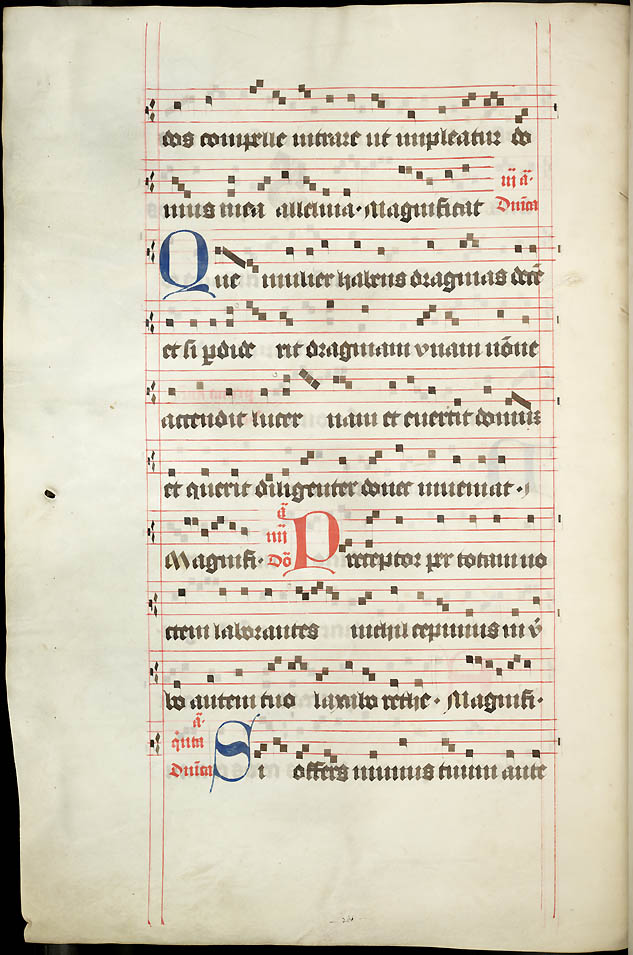 cos compelle intrare ut impleatur do
mus mea alleluia. Magnificat iij a. Dn̄ica
Que mulier habens dragmas dece̅
et si p̱dide rit dragmam vnam nōne
accendit lucer nam et euertit domu̅
et querit diligenter donec inueniat.
Magnifi. a iiij Do̅ Preceptor per totam no
ctem laborantes nichil cepimus in v̄
bo autem tuo laxabo rethe. Magnifi.
a. q̄nta Dn̄ica Si offers munus tuum ante